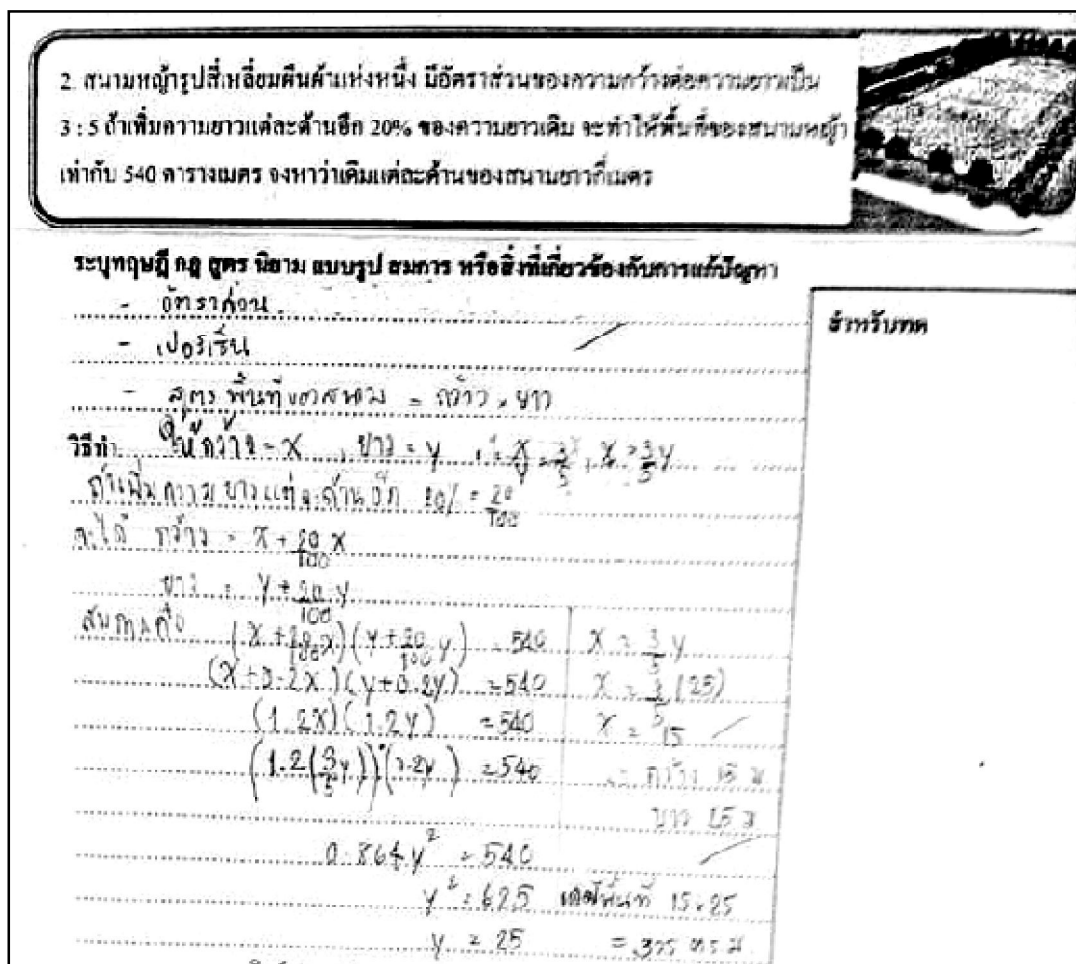 2. สนามหญ้ารูปสี่เหลี่ยมผืนผ้าแห่งหนึ่ง มีอัตราส่วนของความกว้างต่อความยาวเป็น
3 : 5 ถ้าเพิ่มความยาวแต่ละด้านอีก 20% ของความยาวเดิม จะทำให้พื้นที่ของสนามหญ้า
เท่ากับ 540 ตารางเมตร จงหาว่าเดิมแต่ละด้านของสนามยาวกี่เมตร
ระบุทฤษฎี กฎ สูตร นิยาม แบบรูป สมการ หรือสิ่งที่เกี่ยวข้องกับการแก้ปัญหา
สำหรับทด
- อัตราส่วน
- เปอร์เซ็น
- สูตร พื้นที่ของสนาม = กว้าง × ยาว
วิธีทำ ให้กว้าง = x , ยาว = y ∴ x/y = 3/5 , x = 3/5 y
ถ้าเพิ่มความยาวแต่ละด้านอีก 20% = 20/100
จะได้ กว้าง = x + 20/100 x
ยาว = y + 20/100 y
สมการคือ (x + 20/100 x)(y + 20/100 y) = 540
(x+0.2x)(y+0.2y) = 540
(1.2x)(1.2y) = 540
(1.2(3/5 y))(1.2y) = 540
0.864y² = 540
y² = 625
y = 25
x = 3/5 y
x = 3/5 (25)
x = 15
∴ กว้าง 15 ม
ยาว 25 ม
พื้นที่ 15×25
= 375 ตร ม